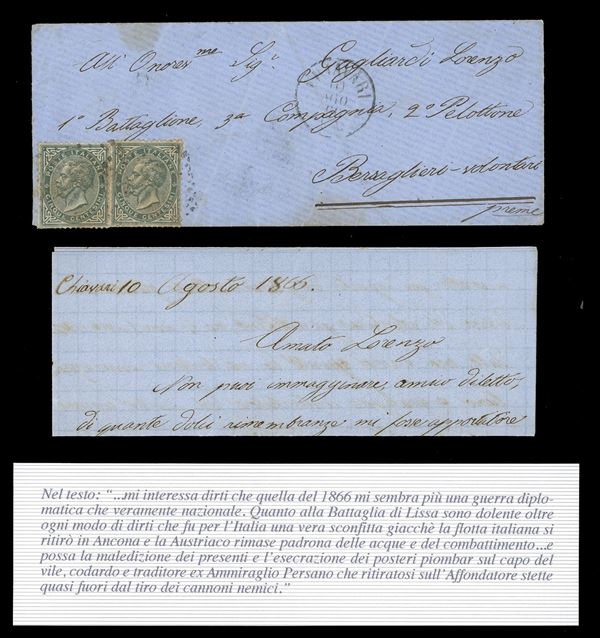 All' Onores.me Sig.r Gagliardi Lorenzo
CHIAVARI
10
1º Battaglione, 3a Compagnia, 2º Pelottone
Bersaglieri-volontari
preme
POSTE ITALIANE POSTE ITALIANE
CINQUE CENTESIMI CINQUE CENTESIMI
Chiavari 10 Agosto 1866.
Amato Lorenzo
Non puoi immagginare, amico diletto,
di quante dolci rimembranze mi fosse apportatore
Nel testo: “...mi interessa dirti che quella del 1866 mi sembra più una guerra diplo-
matica che veramente nazionale. Quanto alla Battaglia di Lissa sono dolente oltre
ogni modo di dirti che fu per l'Italia una vera sconfitta giacchè la flotta italiana si
ritirò in Ancona e la Austriaco rimase padrona delle acque e del combattimento...e
possa la maledizione dei presenti e l'esecrazione dei posteri piombar sul capo del
vile, codardo e traditore ex Ammiraglio Persano che ritiratosi sull'Affondatore stette
quasi fuori dal tiro dei cannoni nemici.”